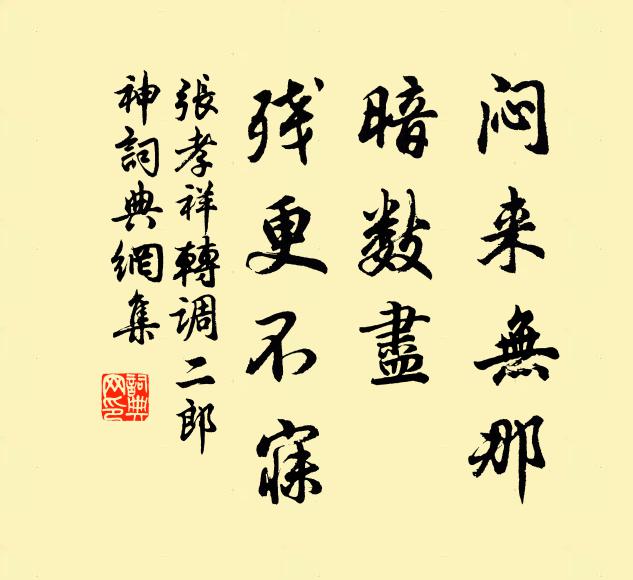 闷来無那
暗数盡
残更不寐
張孝祥轉调二郎
神詞典網集
詞典网印